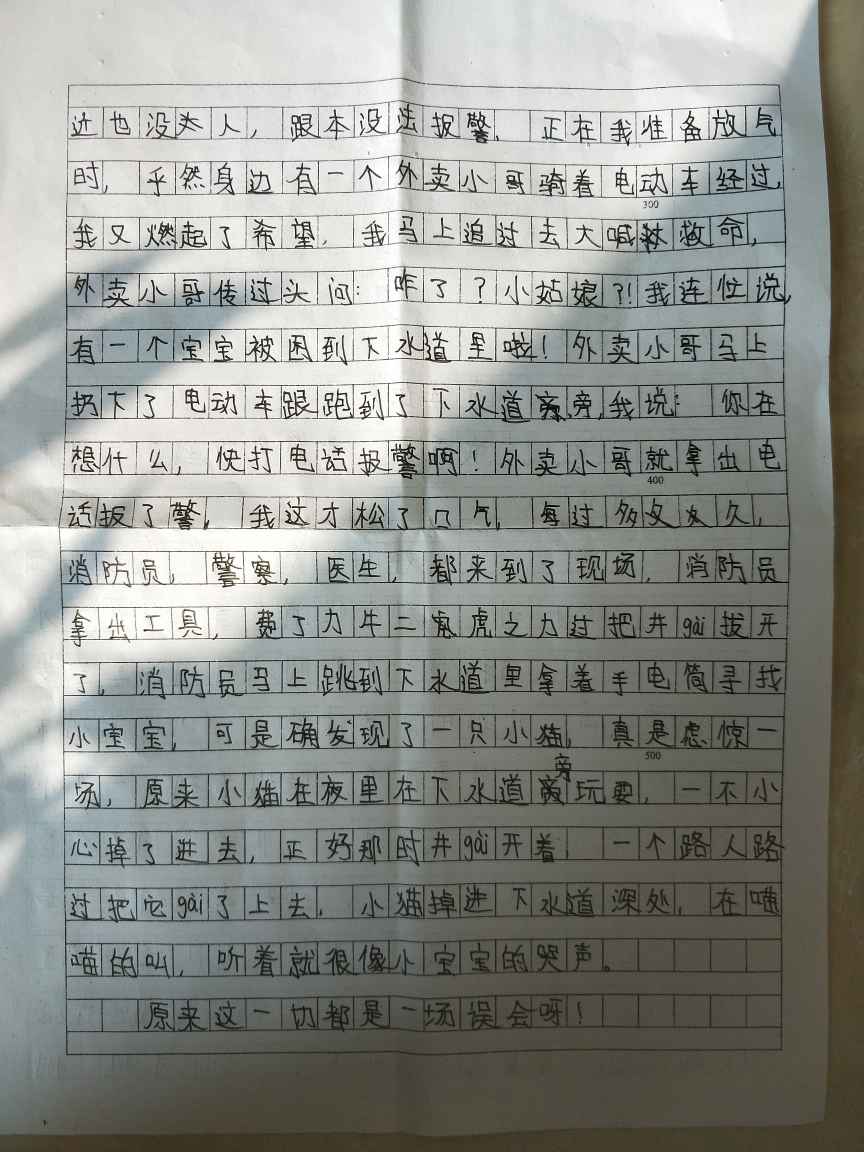 近也没大人，跟本没法报警，正在我准备放气
时，乎然身边有一个外卖小哥骑着电动车经过，
300
我又燃起了希望，我马上追过去大喊救命，
外卖小哥传过头问：咋了？小姑娘？！我连忙说，
有一个宝宝被困到下水道里啦！外卖小哥马上
扔下了电动车跟跑到了下水道旁，我说：你在
想什么，快打电话报警啊！外卖小哥就拿出电
400
话报了警，我这才松了口气，每过多久，
消防员，警察，医生，都来到了现场，消防员
拿出工具，费了力牛二虎之力过把井gài拔开
了，消防员马上跳到下水道里拿着手电筒寻找
小宝宝，可是确发现了一只小猫，真是虑惊一
500
场，原来小猫在夜里在下水道旁玩耍，一不小
心掉了进去，正好那时井gài开着，一个路人路
过把它gài了上去，小猫掉进下水道深处，在喵
喵的叫，听着就很像小宝宝的哭声。
原来这一切都是一场误会呀！